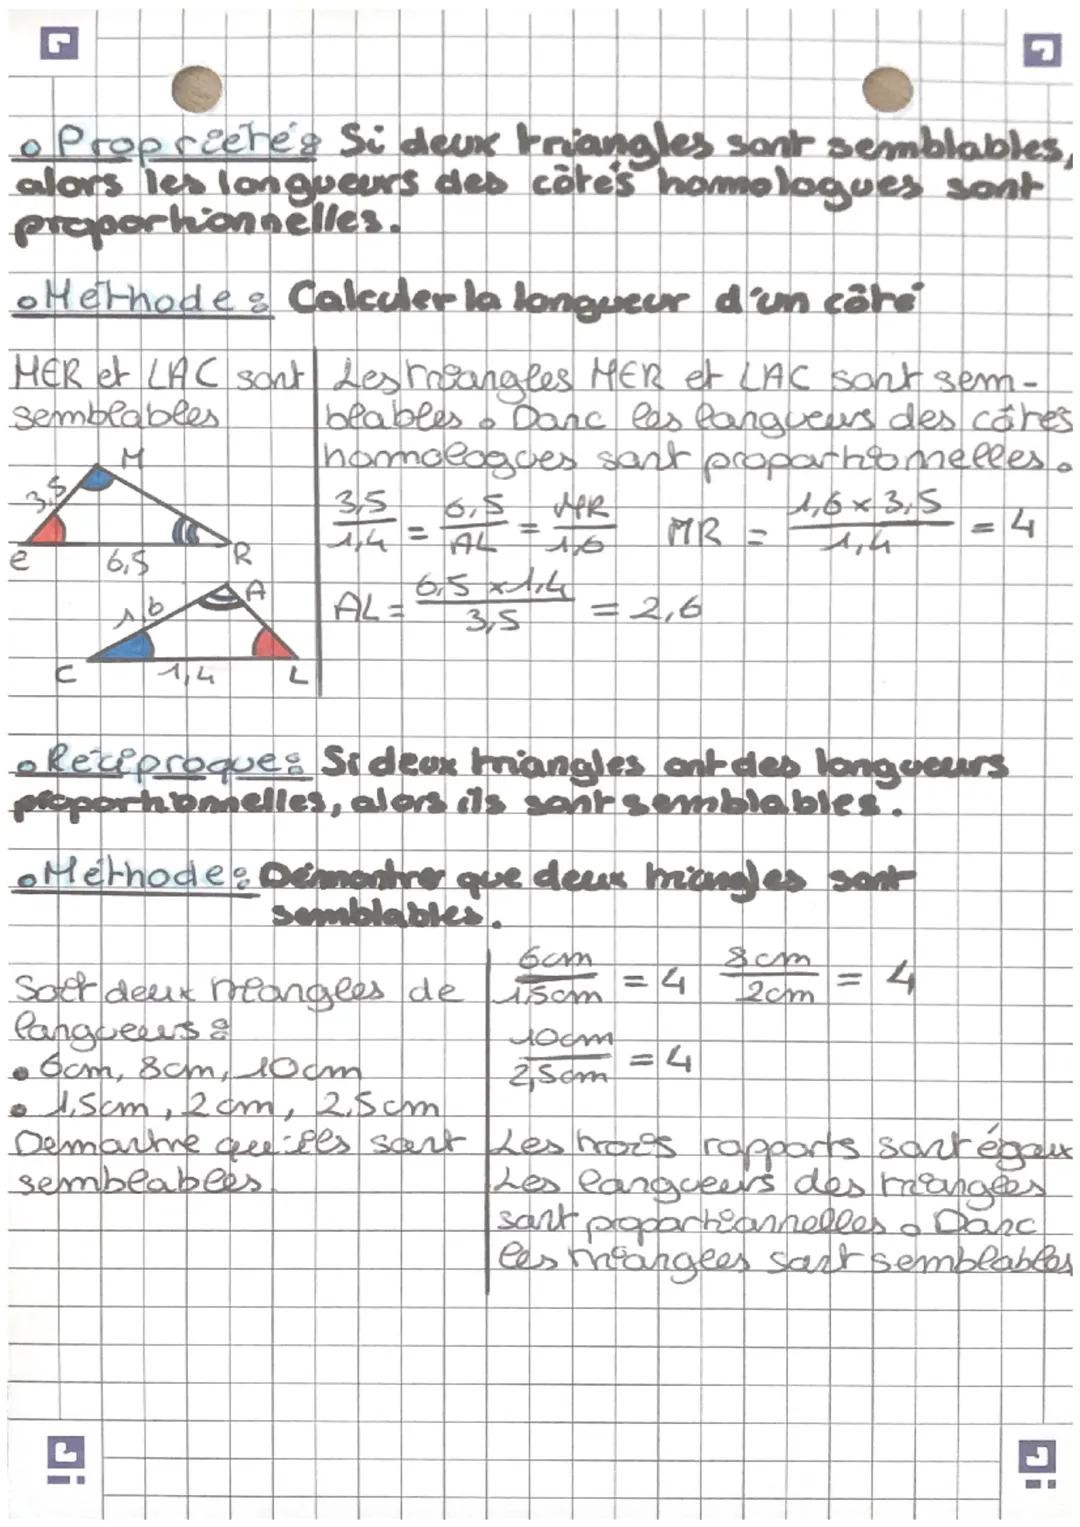 • Propriétés Si deux triangles sont semblables,
alors les longueurs des côtés homologues sont
proportionnelles.
• Méthode : Calculer la longueur d'un côté
MER et LAC sont
semblables
M
3,5
e
6,5
R
A
1,6
C
1,4
L
Les triangles MER et LAC sont sem-
blables. Donc les longueurs des côtés
homologues sont proportionnelles.
3,5/1,4 = 6,5/AL = MR/1,6   MR = 1,6 x 3,5/1,4 = 4
AL = 6,5 x 1,4/3,5 = 2,6
• Réciproque : Si deux triangles ont des longueurs
proportionnelles, alors ils sont semblables.
• Méthode : Démontrer que deux triangles sont
semblables.
Soit deux triangles de
longueurs :
• 6cm, 8cm, 10cm
• 1,5cm, 2cm, 2,5cm
Démontre qu'ils sont
semblables.
6cm/1,5cm = 4   8cm/2cm = 4
10cm/2,5cm = 4
Les trois rapports sont égaux
Les longueurs des triangles
sont proportionnelles. Donc
les triangles sont semblables